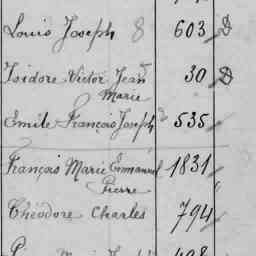 Louis Joseph 8 603
Isidore Victor Jean 30
Marie
Emile François Joseph 535
François Marie Emmanuel 1831
Pierre
Théodore Charles 794